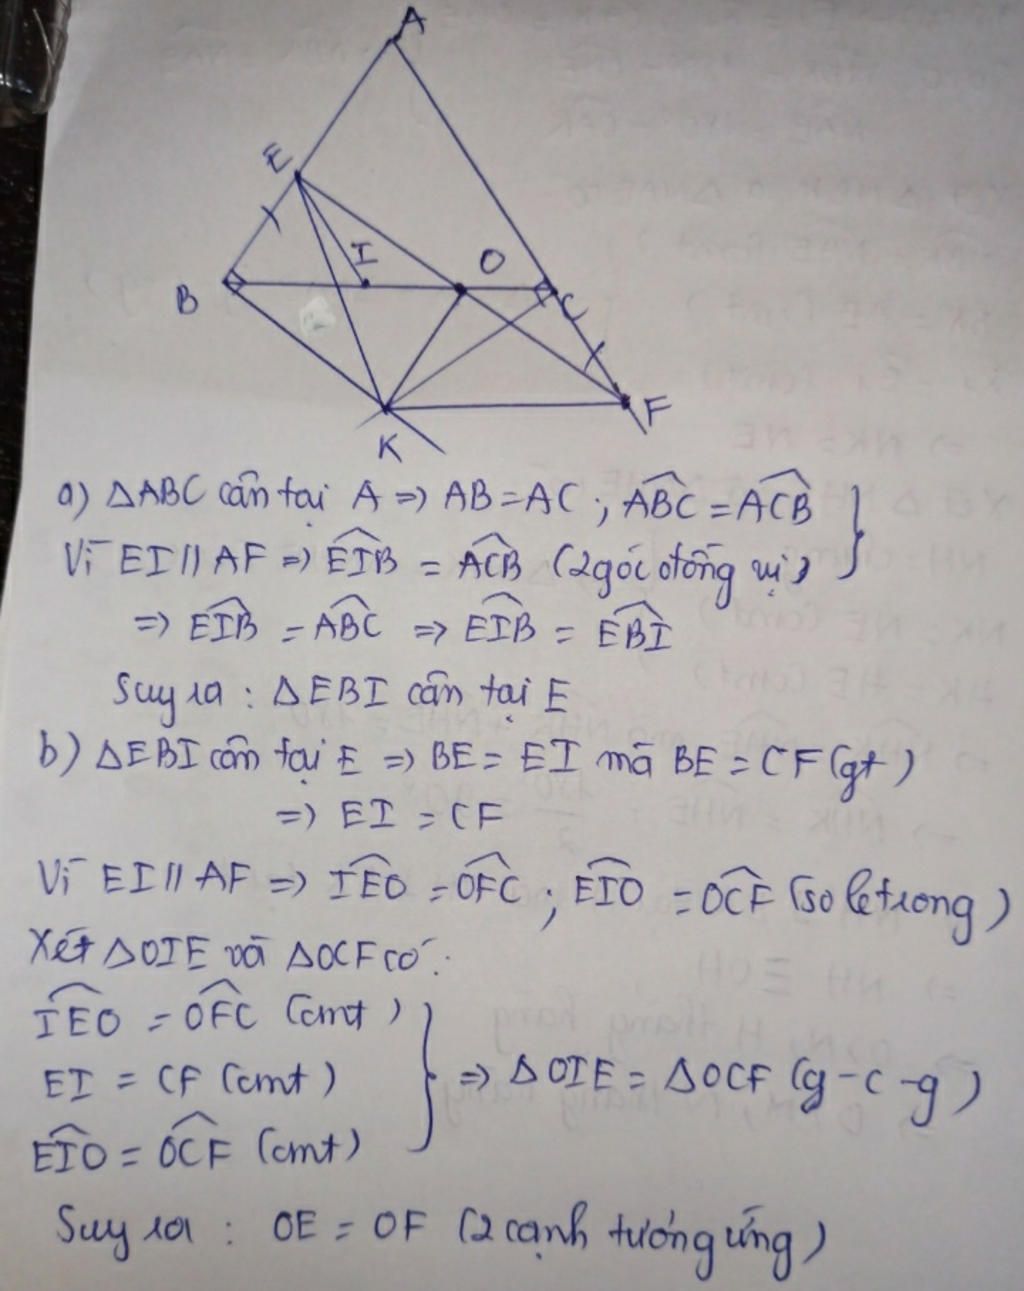 A
E
I
O
B
C
F
K
a) ΔABC cân tại A => AB = AC ; \widehat{ABC} = \widehat{ACB}
Vì EI // AF => \widehat{EIB} = \widehat{ACB} (2 góc đồng vị)
=> \widehat{EIB} = \widehat{ABC} => \widehat{EIB} = \widehat{EBI}
Suy ra : ΔEBI cân tại E
b) ΔEBI cân tại E => BE = EI mà BE = CF (gt)
=> EI = CF
Vì EI // AF => \widehat{IEO} = \widehat{OFC} ; \widehat{EIO} = \widehat{OCF} (so le trong)
Xét ΔOIE và ΔOCF có :
\widehat{IEO} = \widehat{OFC} (cmt)
EI = CF (cmt) => ΔOIE = ΔOCF (g-c-g)
\widehat{EIO} = \widehat{OCF} (cmt)
Suy ra : OE = OF (2 cạnh tương ứng)